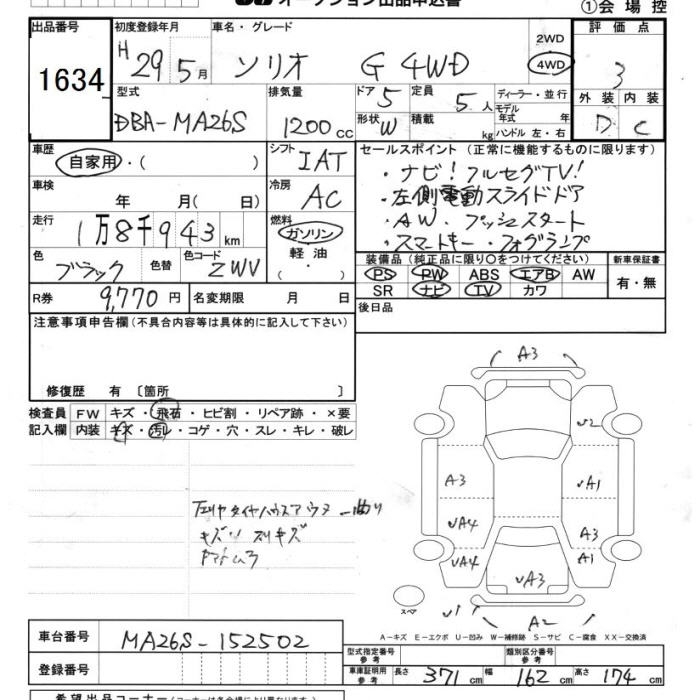 オークション出品申込書
①会場控
出品番号 初度登録年月 車名・グレード 評価点
1634
H 29 5月 ソリオ G 4WD 2WD 4WD 3
型式 排気量 ドア 5 定員 5人 ディーラー・並行 外装 内装
DBA-MA26S 1200cc 形状 W 積載 kg モデル年式 年 D C
ハンドル 左・右
車歴 自家用・( ) シフト IAT セールスポイント (正常に機能するものに限ります)
・ナビ!フルセグTV!
車検 年 月( 日) 冷房 AC ・左側電動スライドドア
走行 1万8千943km 燃料 ガソリン 軽油 ・AW・プッシュスタート
・スマートキー・フォグランプ
色 ブラック 色替 色コード ZWV
装備品(純正品に限り〇をつけてください) 新車保証書
PS PW ABS エアB AW 有・無
SR ナビ TV カワ
R券 9,770円 名変期限 月 日 後日品
注意事項申告欄(不具合内容等は具体的に記入して下さい)
修復歴 有 〔箇所 〕
検査員 FW キズ・飛石・ヒビ割・リペア跡・×要
記入欄 内装 キズ・汚レ・コゲ・穴・スレ・キレ・破レ
A3
U2
A3 UA1
UA4 A3
UA4 A1
UA3
スペア U1 A2
A-キズ E-エクボ U-凹み W-補修跡 S-サビ C-腐食 XX-交換済
車台番号 MA26S-152502
型式指定番号 参考 類別区分番号 参考
登録番号
車庫証明用 参考 長さ 371cm 幅 162cm 高さ 174cm
希望出品コーナー